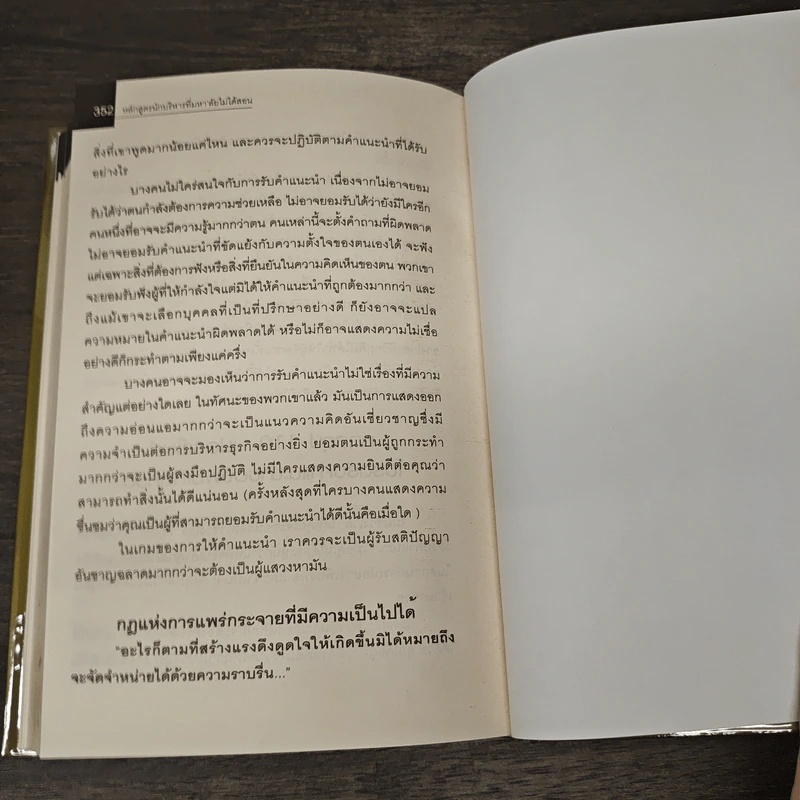 352 หลักสูตรนักบริหารที่มหา'ลัยไม่ได้สอน
สิ่งที่เขาพูดมากน้อยแค่ไหน และควรจะปฏิบัติตามคำแนะนำที่ได้รับ
อย่างไร
บางคนไม่ใคร่สนใจกับการรับคำแนะนำ เนื่องจากไม่อาจยอม
รับได้ว่าตนกำลังต้องการความช่วยเหลือ ไม่อาจยอมรับได้ว่ายังมีใครอีก
คนหนึ่งที่อาจจะมีความรู้มากกว่าตน คนเหล่านี้จะตั้งคำถามที่ผิดพลาด
ไม่อาจยอมรับคำแนะนำที่ขัดแย้งกับความตั้งใจของตนเองได้ จะฟัง
แต่เฉพาะสิ่งที่ต้องการฟังหรือสิ่งที่ยืนยันในความคิดเห็นของตน พวกเขา
จะยอมรับฟังผู้ที่ให้กำลังใจแต่มิได้ให้คำแนะนำที่ถูกต้องมากกว่า และ
ถึงแม้เขาจะเลือกบุคคลที่เป็นที่ปรึกษาอย่างดี ก็ยังอาจจะแปล
ความหมายในคำแนะนำผิดพลาดได้ หรือไม่ก็อาจแสดงความไม่เชื่อ
อย่างดีก็กระทำตามเพียงแค่ครึ่ง
บางคนอาจจะมองเห็นว่าการรับคำแนะนำไม่ใช่เรื่องที่มีความ
สำคัญแต่อย่างใดเลย ในทัศนะของพวกเขาแล้ว มันเป็นการแสดงออก
ถึงความอ่อนแอมากกว่าจะเป็นแนวความคิดอันเชี่ยวชาญซึ่งมี
ความจำเป็นต่อการบริหารธุรกิจอย่างยิ่ง ยอมตนเป็นผู้ถูกกระทำ
มากกว่าจะเป็นผู้ลงมือปฏิบัติ ไม่มีใครแสดงความยินดีต่อคุณว่า
สามารถทำสิ่งนั้นได้ดีแน่นอน (ครั้งหลังสุดที่ใครบางคนแสดงความ
ชื่นชมว่าคุณเป็นผู้ที่สามารถยอมรับคำแนะนำได้ดีนั้นคือเมื่อใด )
ในเกมของการให้คำแนะนำ เราควรจะเป็นผู้รับสติปัญญา
อันชาญฉลาดมากกว่าจะต้องเป็นผู้แสวงหามัน
กฎแห่งการแพร่กระจายที่มีความเป็นไปได้
"อะไรก็ตามที่สร้างแรงดึงดูดใจให้เกิดขึ้นมิได้หมายถึง
จะจัดจำหน่ายได้ด้วยความราบรื่น..."